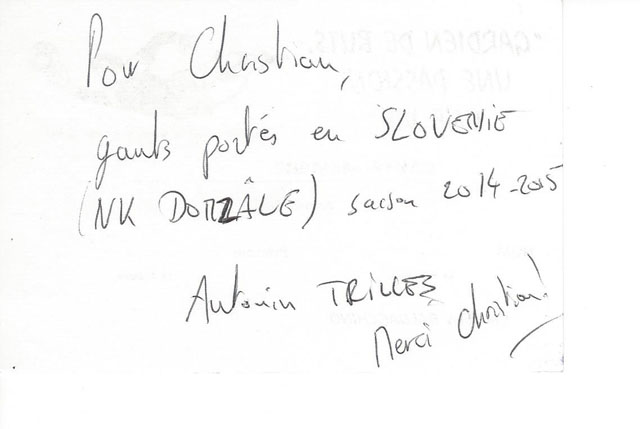 Pour Christian,
gants portés en SLOVENIE
(NK DOMZÂLE) saison 2014-2015
Antonin TRILLES
Merci Christian!
"GARDIEN DE BUTS,
UNE PASSION